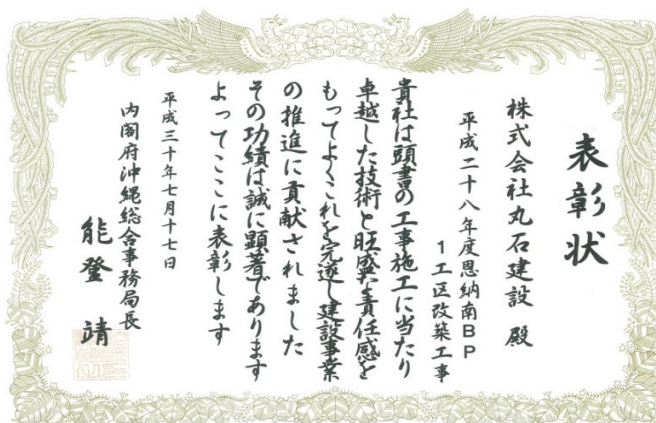 表彰状
株式会社丸石建設 殿
平成二十八年度恩納南BP
1工区改築工事
貴社は頭書の工事施工に当たり
卓越した技術と旺盛な責任感を
もってよくこれを完遂し建設事業
の推進に貢献されました
その功績は誠に顕著であります
よってここに表彰します
平成三十年七月十七日
内閣府沖縄総合事務局長
能登 靖